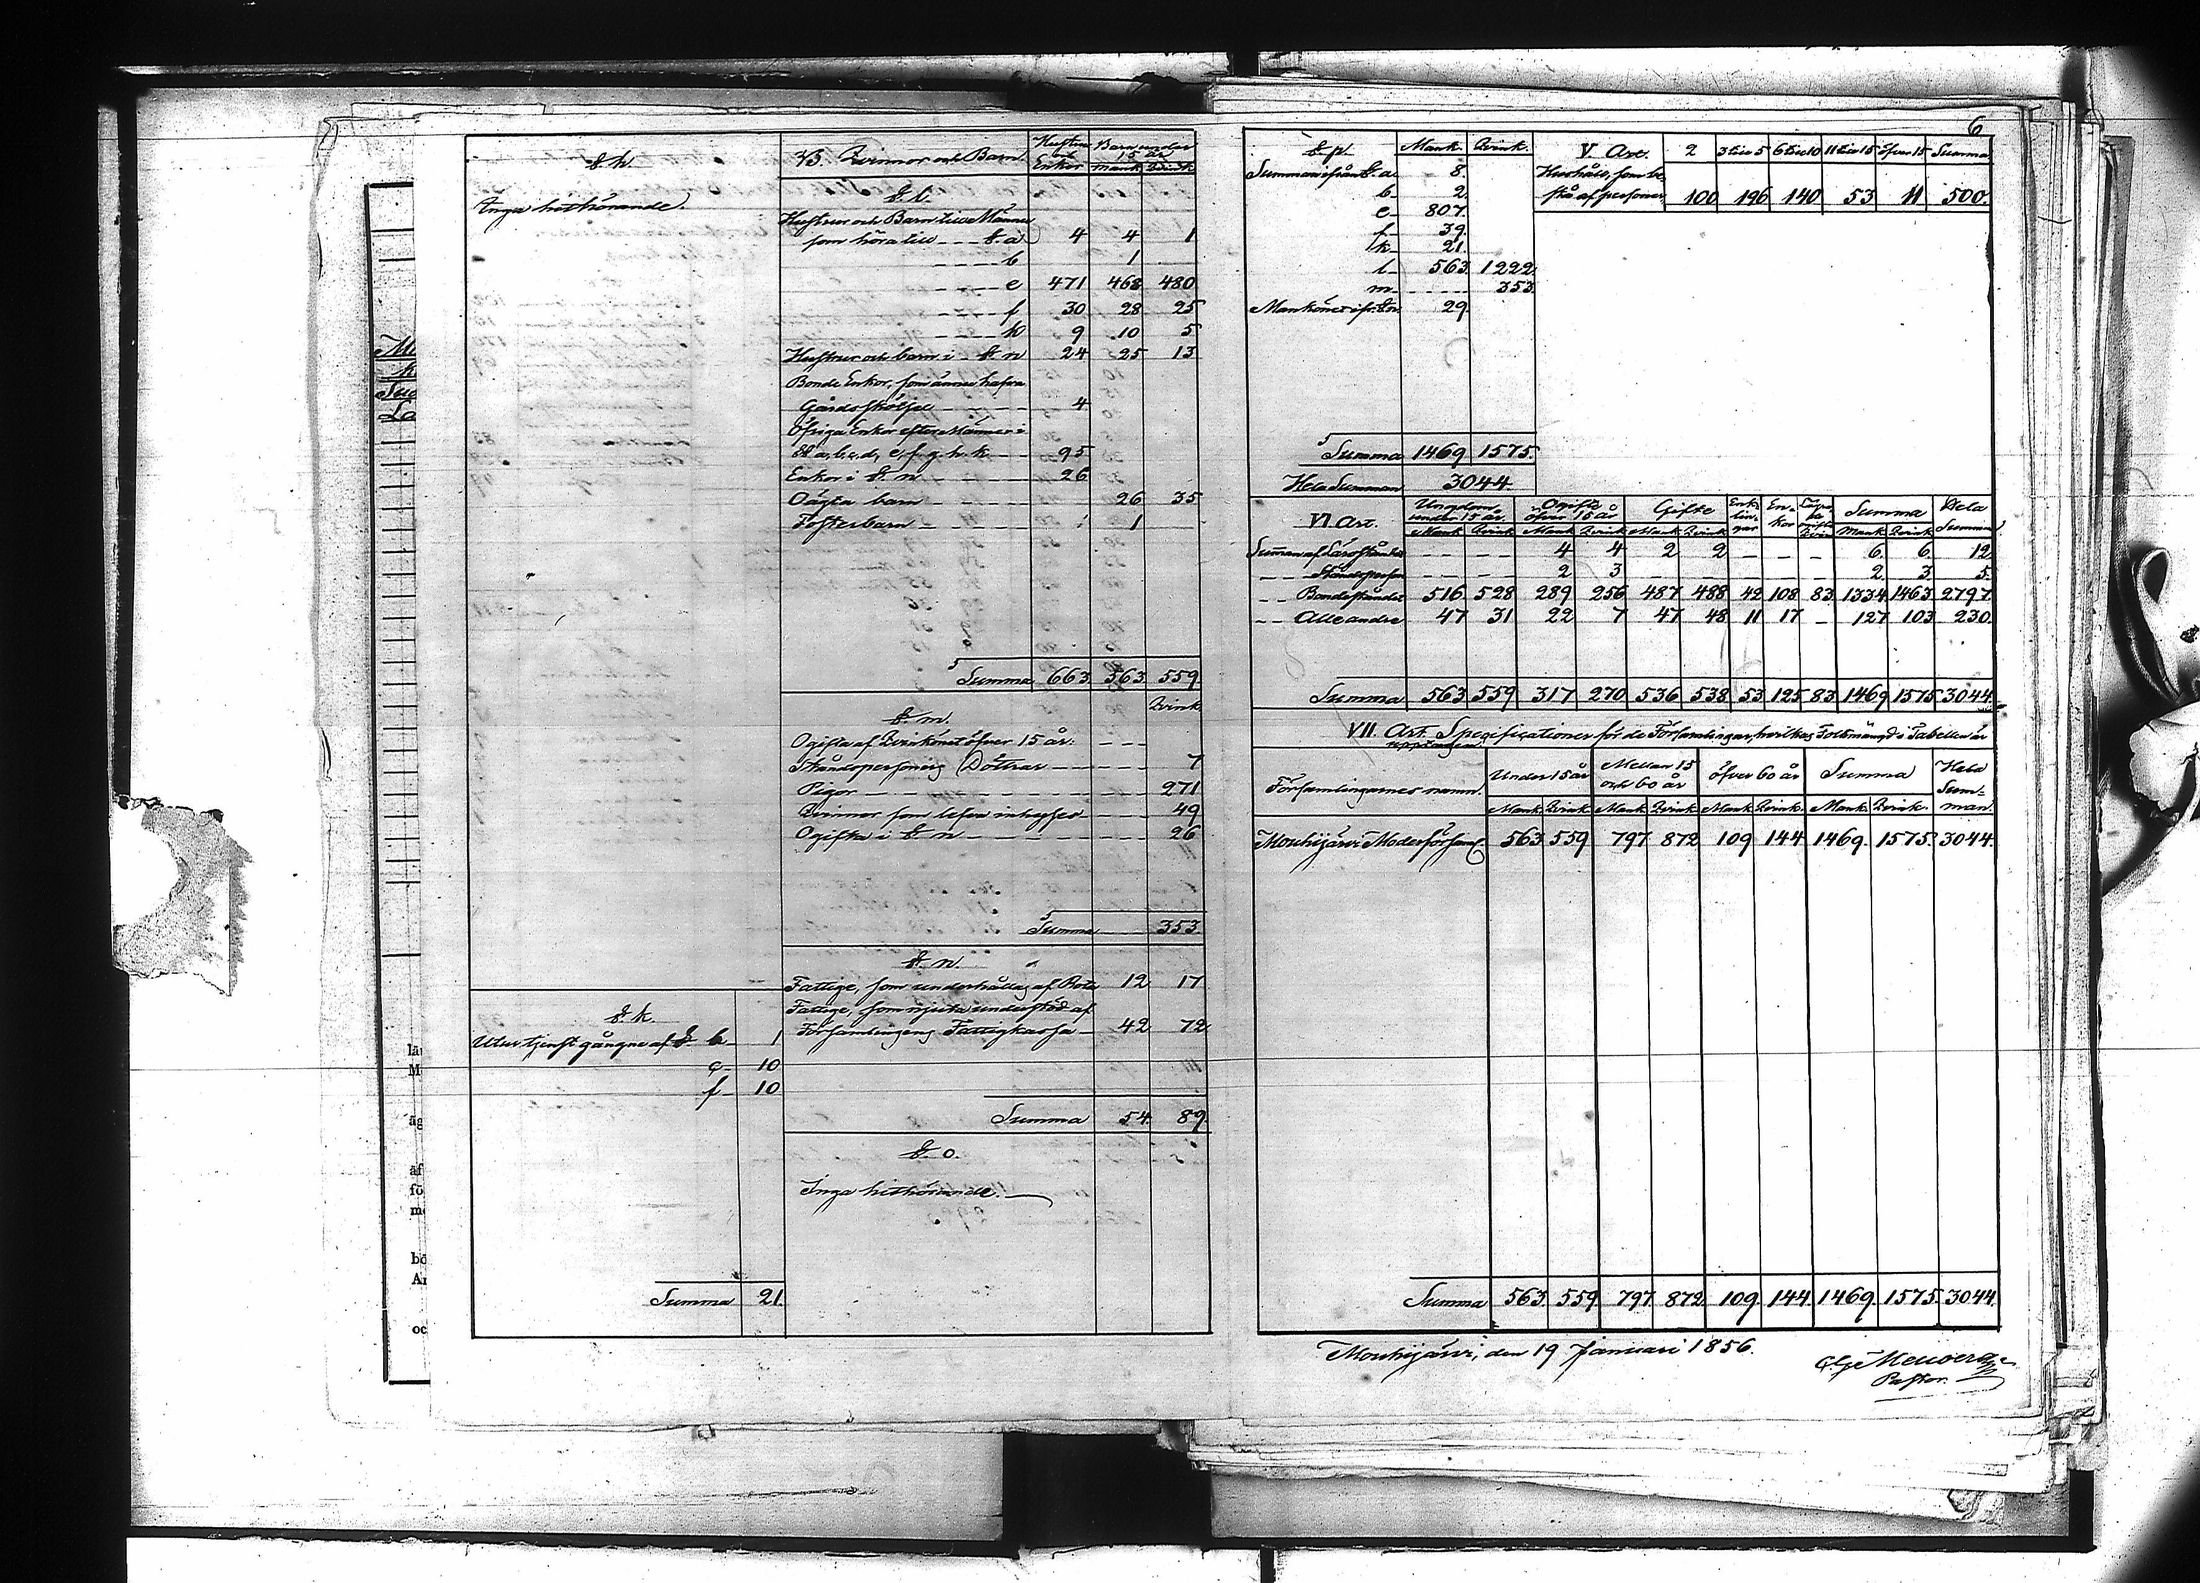 6
§ h.
Inga hithörande.
§. k.
Utur tjenst gångne af §. b - 1
e - 10
f - 10
Summa 21.
B. Qvinnor och Barn. Hustrur och Enkor Barn under 15 år
Mank. Qvink.
§. l.
Hustrur och Barn till Männer
som höra till - - - §. a 4 4 1
- - - - b 1
- - - - e 471 468 480
- - - - f 30 28 25
- - - - k 9 10 5
Hustrur och barn i - §. n 24 25 13
Bonde Enkor, som ännu hafva
Gårdsskötsel - - - - 4
Öfriga Enkor efter Männer i
§§ a, b, c, d, e, f, g, h, k - - 95
Enkor i §. n - - - - 26
Oägta barn - - - - 26 35
Fosterbarn - - - - 1
Summa 663 563 559
Qvink.
§. m.
Ogifta af Qvinkönet öfver 15 år: - - -
Ståndspersoners Döttrar - - - - 7
Pigor - - - - 271
Qvinnor som lefva inhyses - - - 49
Ogifta i §. n - - - - 26
Summa 353.
§. n.
Fattige, som underhållas af Rote 12 17
Fattige, som njuta understöd af
Församlingens Fattigkassa - 42 72
Summa 54. 89.
§. o.
Inga hithörande.
§. p. Mank. Qvink.
Summan ifrån §. a 8.
b - 2
e - 807.
f - 39.
k - 21.
l - 563. 1222.
m - - - - 353.
Mankönet ifr. §. n. 29.
Summa 1469. 1575.
Hela Summan 3044.
V. Art. 2 3 till 5 6 till 10 11 till 15 öfver 15 Summa
Hushåll, som be-
stå af personer 100 196 140 53 11 500.
VI Art. Ungdom under 15 år. Ogifte öfver 15 år Gifte Enk-lin-gar En-kor Summa Hela Summa
Mank Qvink Mank Qvink Mank Qvink Mank Qvink
Summan af Läroståndet - - 4 4 2 2 - - - 6. 6. 12.
- - Ståndsperson - - 2 3 - - - - - 2. 3. 5.
- - Bondeståndet 516 528 289 256 487 488 42 108 83 1334 1463 2797.
- - Alle andre 47 31 22 7 47 48 11 17 - 127 103 230.
Summa 563 559 317 270 536 538 53 125 83 1469 1575 3044.
VII. Art. Specificationer för de Församlingar, hvilkas Folkmängd i Tabellen är
upptagen.
Församlingarnes namn. Under 15 år Mellan 15 och 60 år öfver 60 år Summa Hela Sum-man.
Mank. Qvink. Mank. Qvink. Mank. Qvink. Mank. Qvink.
Mouhijärvi Moderförsaml. 563 559 797 872 109 144 1469. 1575. 3044.
Summa 563 559 797 872 109. 144. 1469. 1575. 3044.
Mouhijärvi, den 19 Januari 1856.
Pastor.